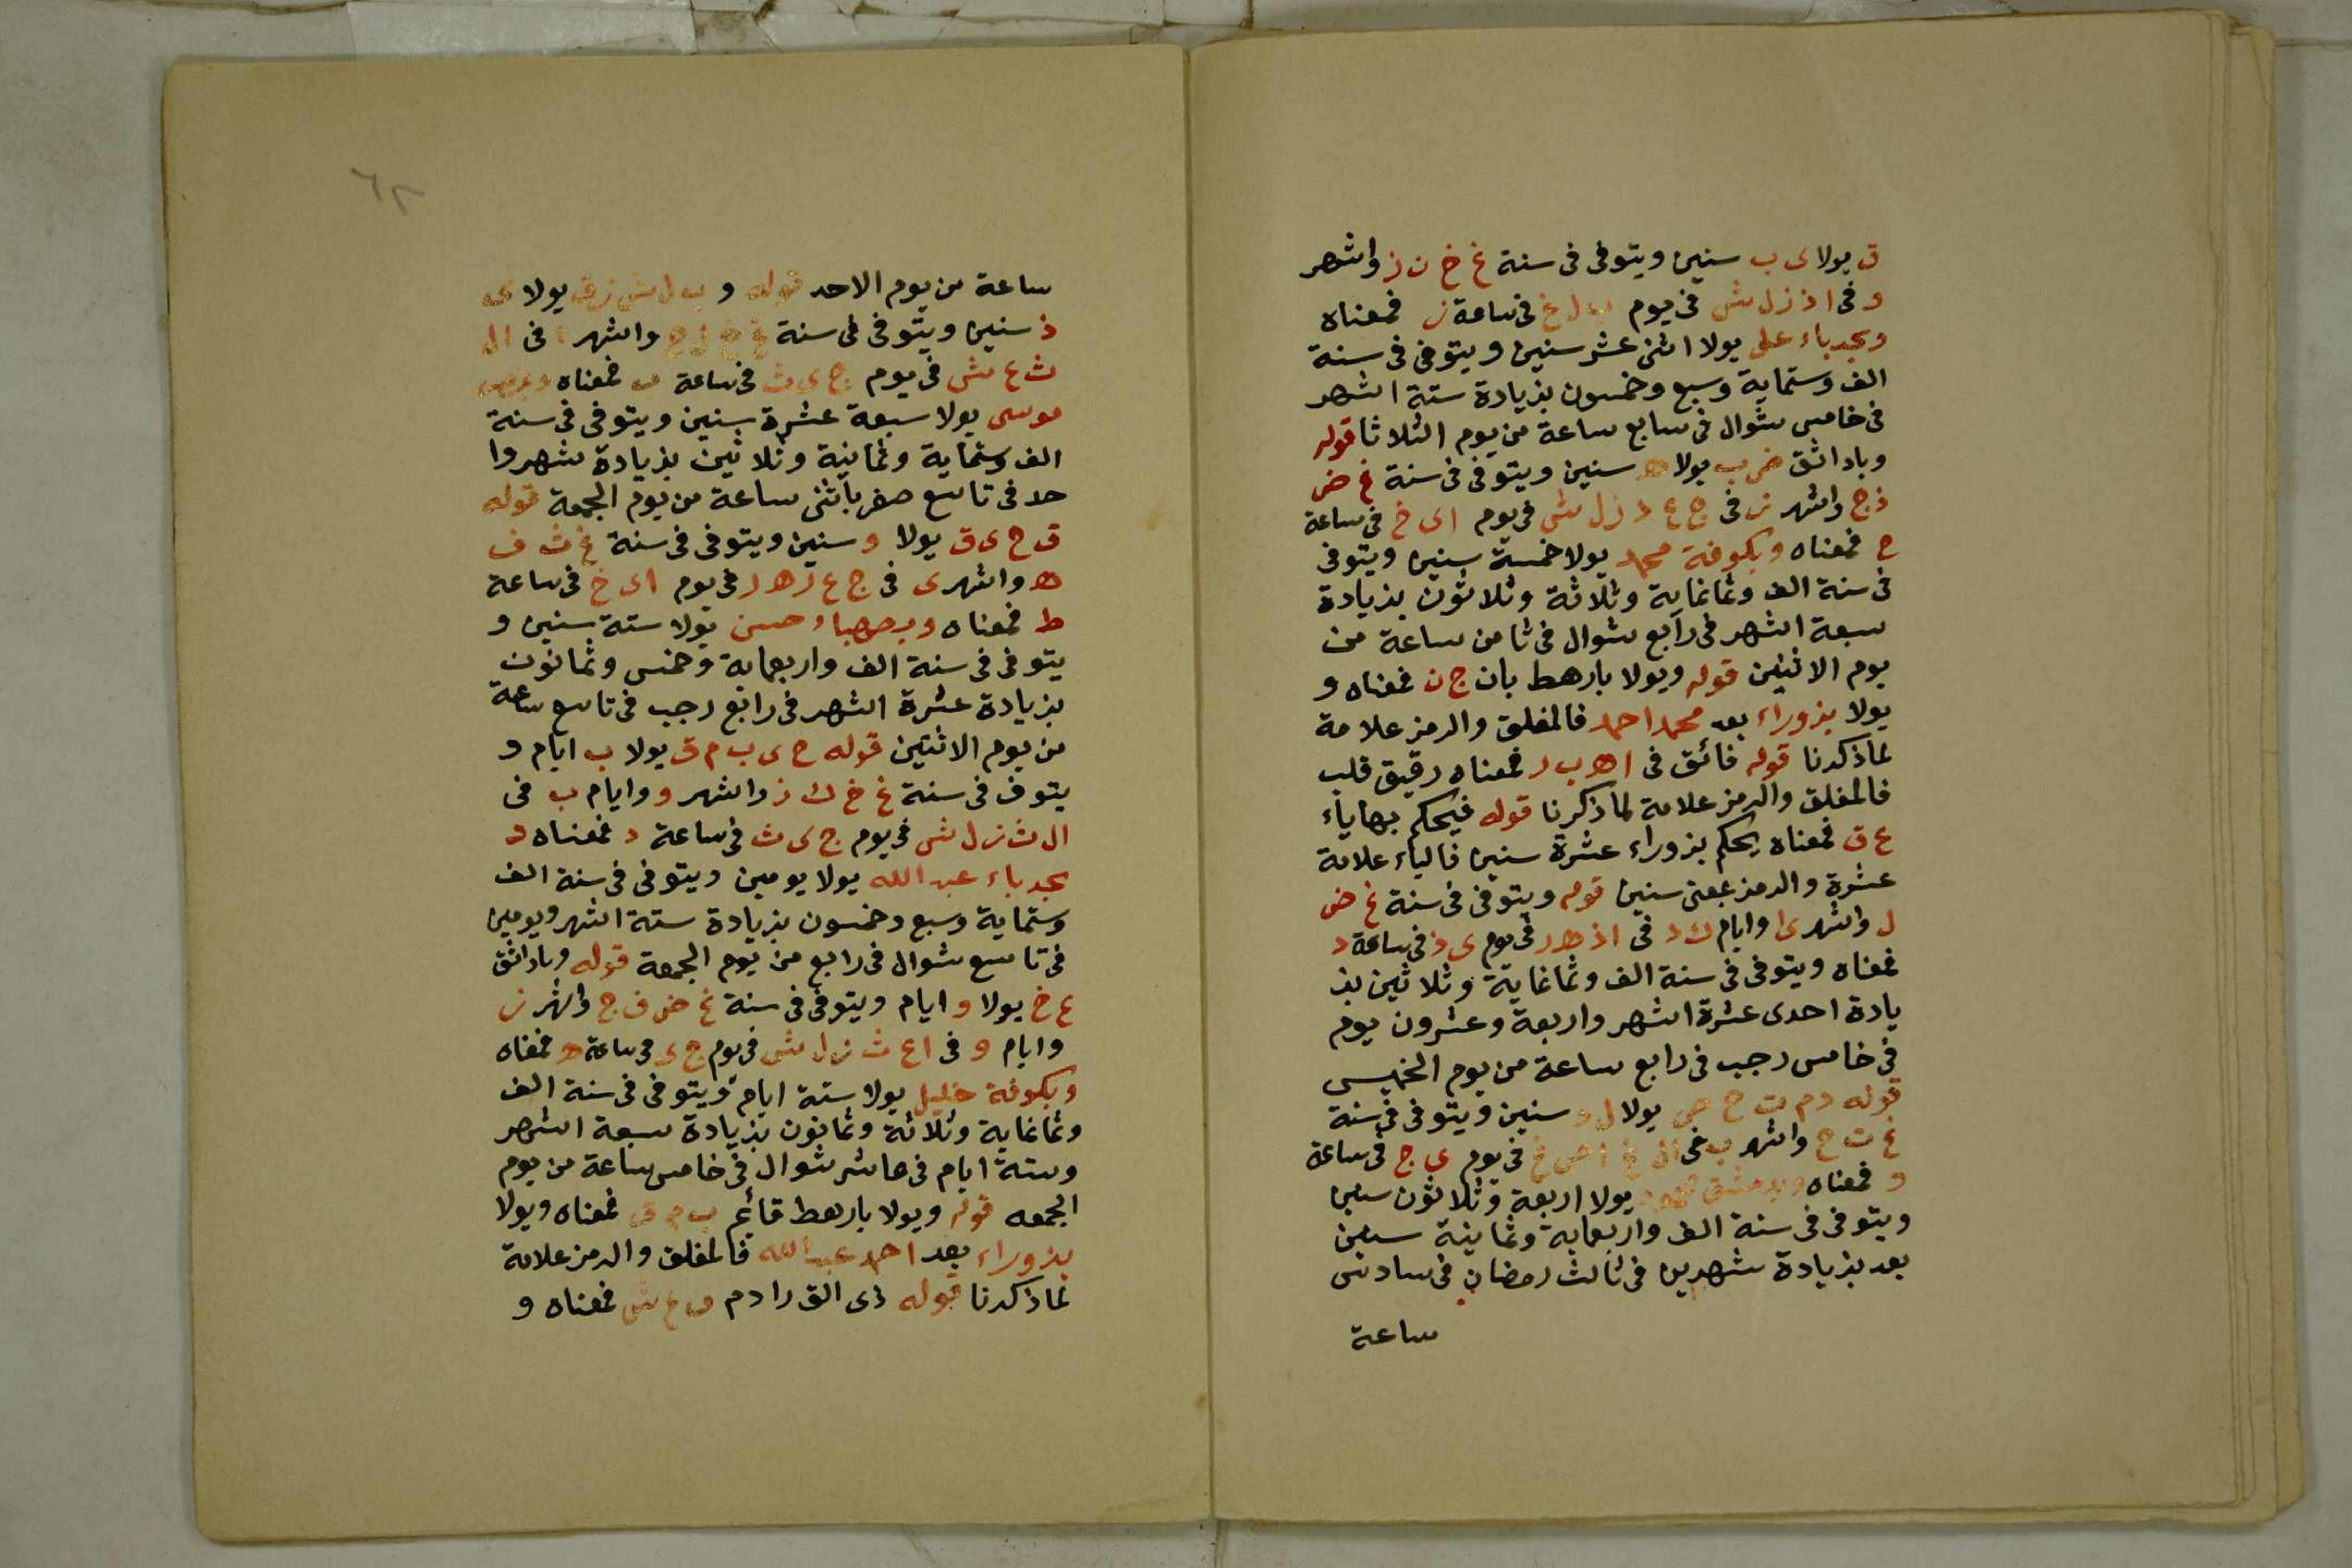 ق يولا ى ب سنين ويتوفى فى سنة غ خ ن ز واشهر
و فى ا ذ ز ل ش فى يوم ب ل غ فى ساعة ز فمعناه
وبجدباء على يولا اثنى عشر سنين ويتوفى فى سنة
الف وستماية وسبع وخمسون بزيادة ستة اشهر
فى خامس شوال فى سابع ساعة من يوم الثلاثا قوله
وباد اثق ض ب يولا ه سنين ويتوفى فى سنة غ ض
ذ ج واشهر ز فى ج ع د ز ل ش فى يوم ا ى خ فى ساعة
ح فمعناه وبكوفة محمد يولا خمسة سنين ويتوفى
فى سنة الف وثمانماية وثلاثة وثلاثون بزيادة
سبعة اشهر فى رابع شوال فى ثامن ساعة من
يوم الاثنين قوله ويولا بارهط بان ج ن فمعناه و
يولا بزوراء بعد محمد احمد فالمغلق والرمز علامة
لما ذكرنا قوله فائق فى ا ه ب د فمعناه رقيق قلب
فالمغلق والرمز علامة لما ذكرنا قوله فيحكم بهاياء
ع ق فمعناه يحكم بزوراء عشرة سنين فالياء علامة
عشرة والرمز بمعنى سنين قوله ويتوفى فى سنة غ ض
ل واشهر ى ا وايام ك د فى ا ذ ه ر فى يوم ى ذ فى ساعة د
فمعناه ويتوفى فى سنة الف وثمانماية وثلاثين بز
يادة احدى عشرة اشهر واربعة وعشرون يوم
فى خامس رجب فى رابع ساعة من يوم الخميس
قوله د م ت ح ص يولا ل د سنين ويتوفى فى سنة
غ ت ح واشهر ب فى ال غ ا ض غ فى يوم ى ج فى ساعة
و فمعناه وبدمشق محمد يولا اربعة وثلاثون سنين
ويتوفى فى سنة الف واربعماية وثمانية سنين
بعد بزيادة شهرين فى ثالث رمضان فى سادس
ساعة
٦٢
ساعة من يوم الاحد قوله و ب ل ش ز ق يولا ى
ذ سنين ويتوفى فى سنة غ خ ل ح واشهر ا فى ال
ث ع ش فى يوم ج ى ث فى ساعة ب فمعناه
موسى يولا سبعة عشرة سنين ويتوفى فى سنة
الف وستماية وثمانية وثلاثين بزيادة شهر وا
حد فى تاسع صفر باثنى ساعة من يوم الجمعة قوله
ق ح ى ق يولا و سنين ويتوفى فى سنة غ ث ف
ه واشهر ى فى ج ع ر ه ر فى يوم ا ى خ فى ساعة
ط فمعناه وبصهباء حسن يولا ستة سنين و
يتوفى فى سنة الف واربعماية وخمس وثمانون
بزيادة عشرة اشهر فى رابع رجب فى تاسع ساعة
من يوم الاثنين قوله ح ى ب م ق يولا ب ايام و
يتوف فى سنة غ خ ك ز واشهر و وايام ب فى
ال ث ز ل ش فى يوم ج ى ث فى ساعة د فمعناه د
بجدباء عبد الله يولا يومين ويتوفى فى سنة الف
وستماية وسبع وخمسون بزيادة ستة اشهر ويومين
فى تاسع شوال فى رابع من يوم الجمعة قوله وباد اثق
ع خ يولا و ايام ويتوفى فى سنة غ ض ف ج واشهر ز
وايام و فى ا ع ث ز ل ش فى يوم ج ى فى ساعة ه فمعناه
وبكوفة خليل يولا ستة ايام ويتوفى فى سنة الف
وثمانماية وثلاثة وثمانون بزيادة سبعة اشهر
وستة ايام فى عاشر شوال فى خامس ساعة من يوم
الجمعه قوله ويولا بارهط قائم ب م ق فمعناه ويولا
بزوراء بعد احمد عبد الله فالمغلق والرمز علامة
لما ذكرنا قوله ذى الق را دم ف ع ش فمعناه و